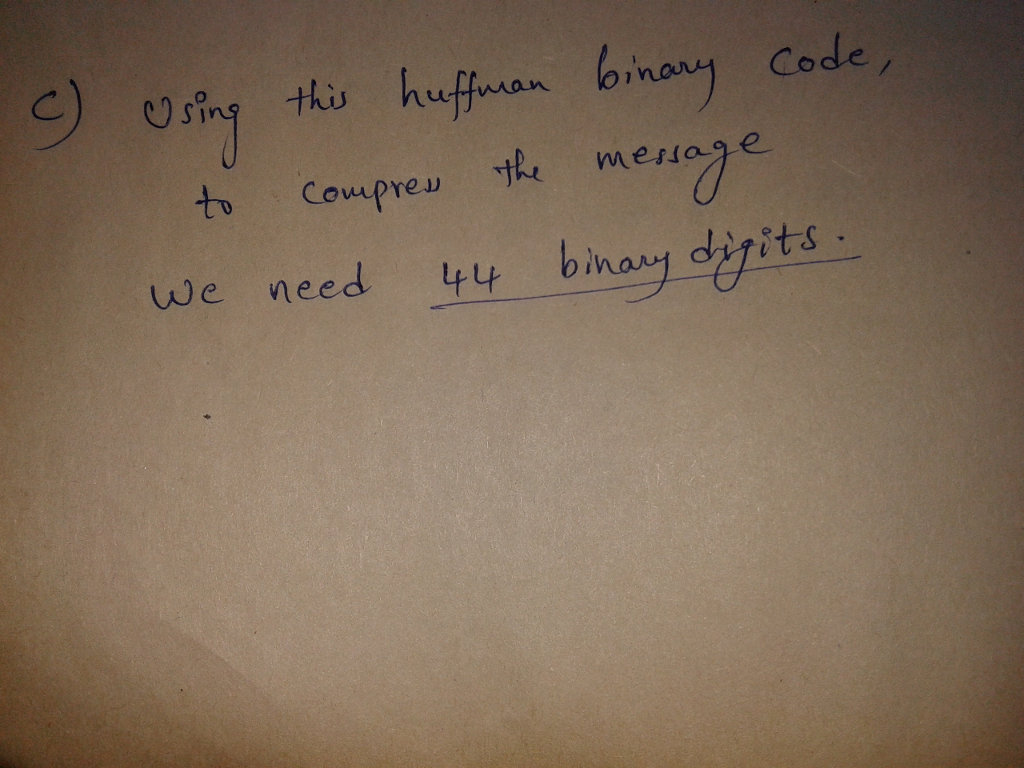 c) Using this huffman binary code,
to compress the message
We need 44 binary digits.